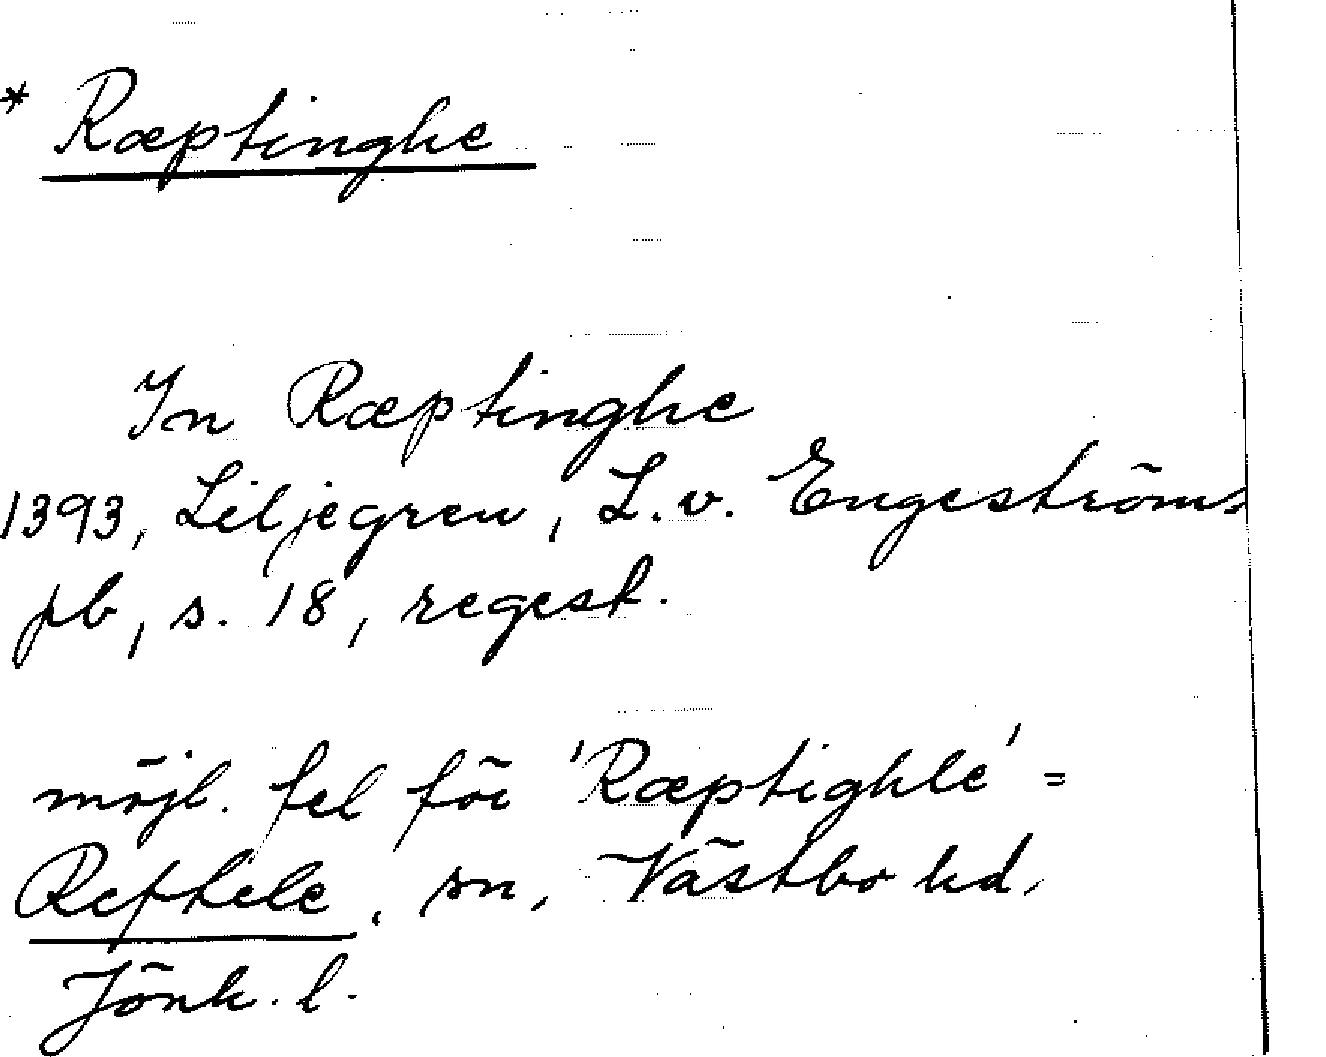 * Ræptinghe
In Ræptinghe
1393, Liljegren, L. v. Engeströms
pb, s. 18, regest.
möjl. fel för 'Ræptighle' =
Reftele, sn, Västbo hd,
Jönk. l.